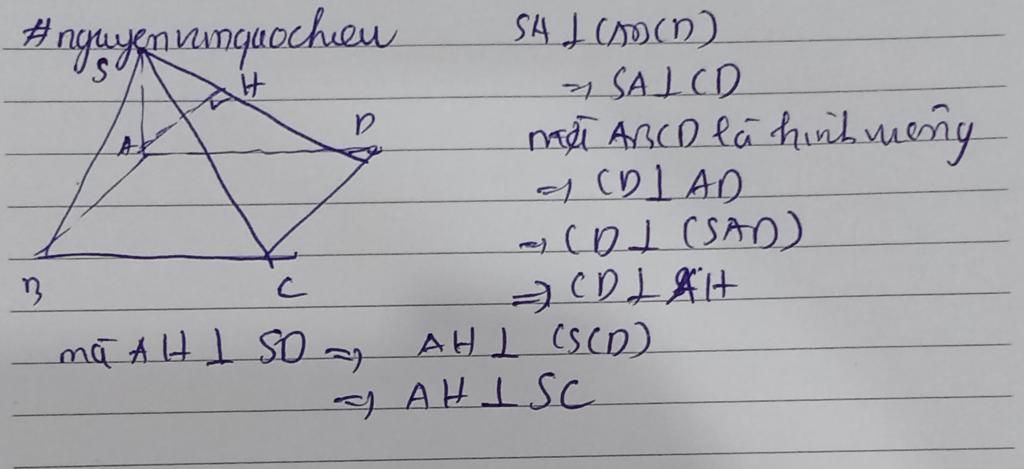 #nguyenvanquochieu
S
H
A
D
B
C
SA ⊥ (ABCD)
⇒ SA ⊥ CD
mà ABCD là hình vuông
⇒ CD ⊥ AD
⇒ CD ⊥ (SAD)
⇒ CD ⊥ AH
mà AH ⊥ SD ⇒ AH ⊥ (SCD)
⇒ AH ⊥ SC